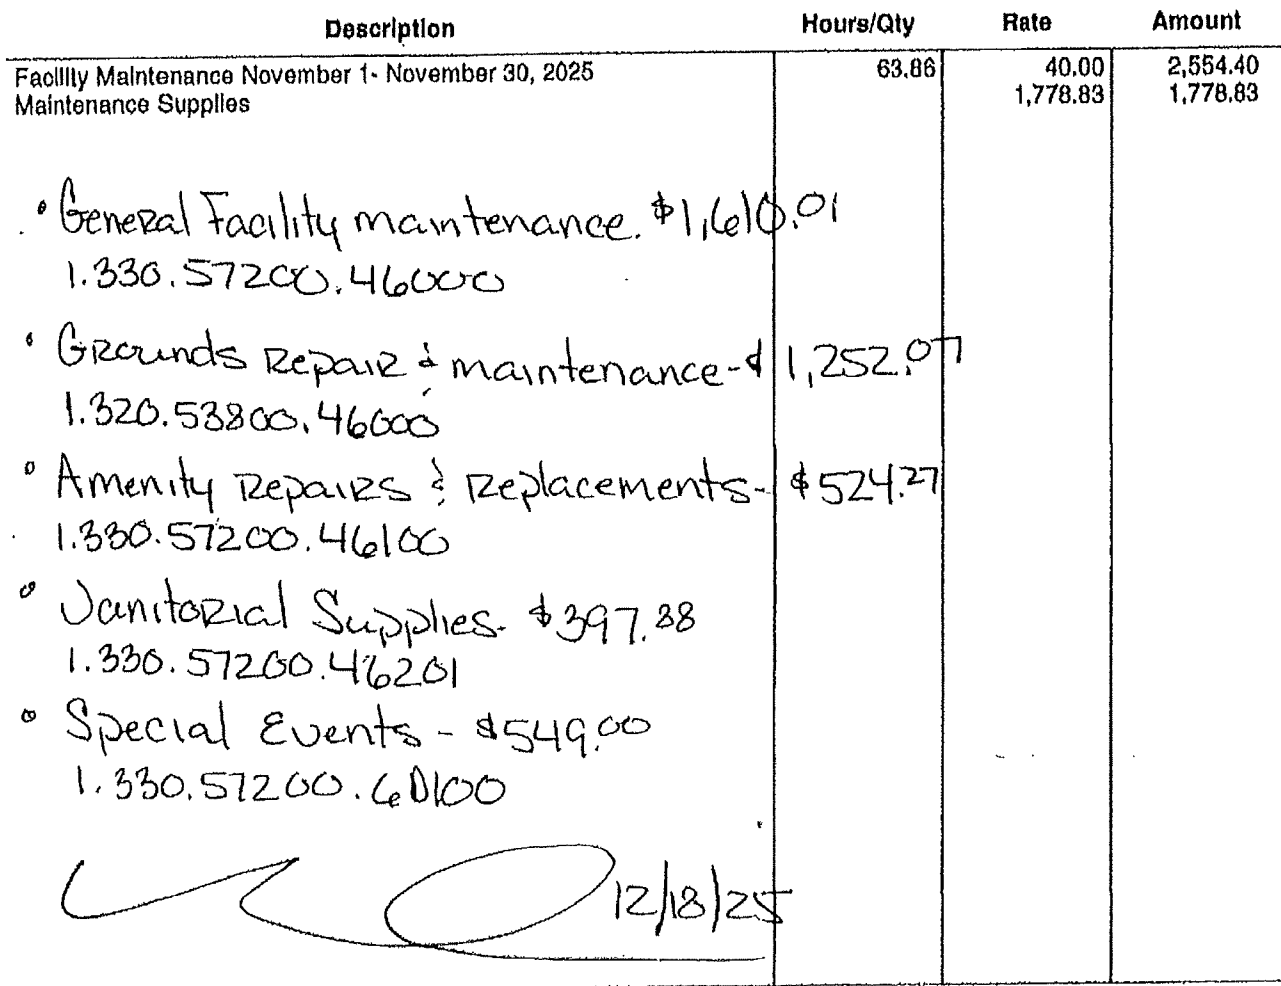 Description Hours/Qty Rate Amount
Facility Maintenance November 1- November 30, 2025 63.86 40.00 2,554.40
Maintenance Supplies 1,778.83 1,778.83
• General Facility maintenance. $1,610.01
1.330.57200.46000
• Grounds Repair & maintenance-$1,252.07
1.320.53800.46000
• Amenity Repairs & Replacements- $524.27
1.330.57200.46100
• Janitorial Supplies- $397.88
1.330.57200.46201
• Special Events - $549.00
1.330.57200.60100
12/18/25